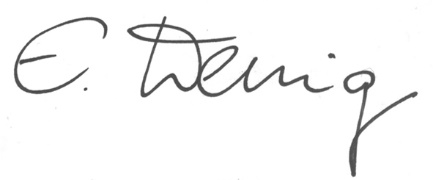 E. Denig